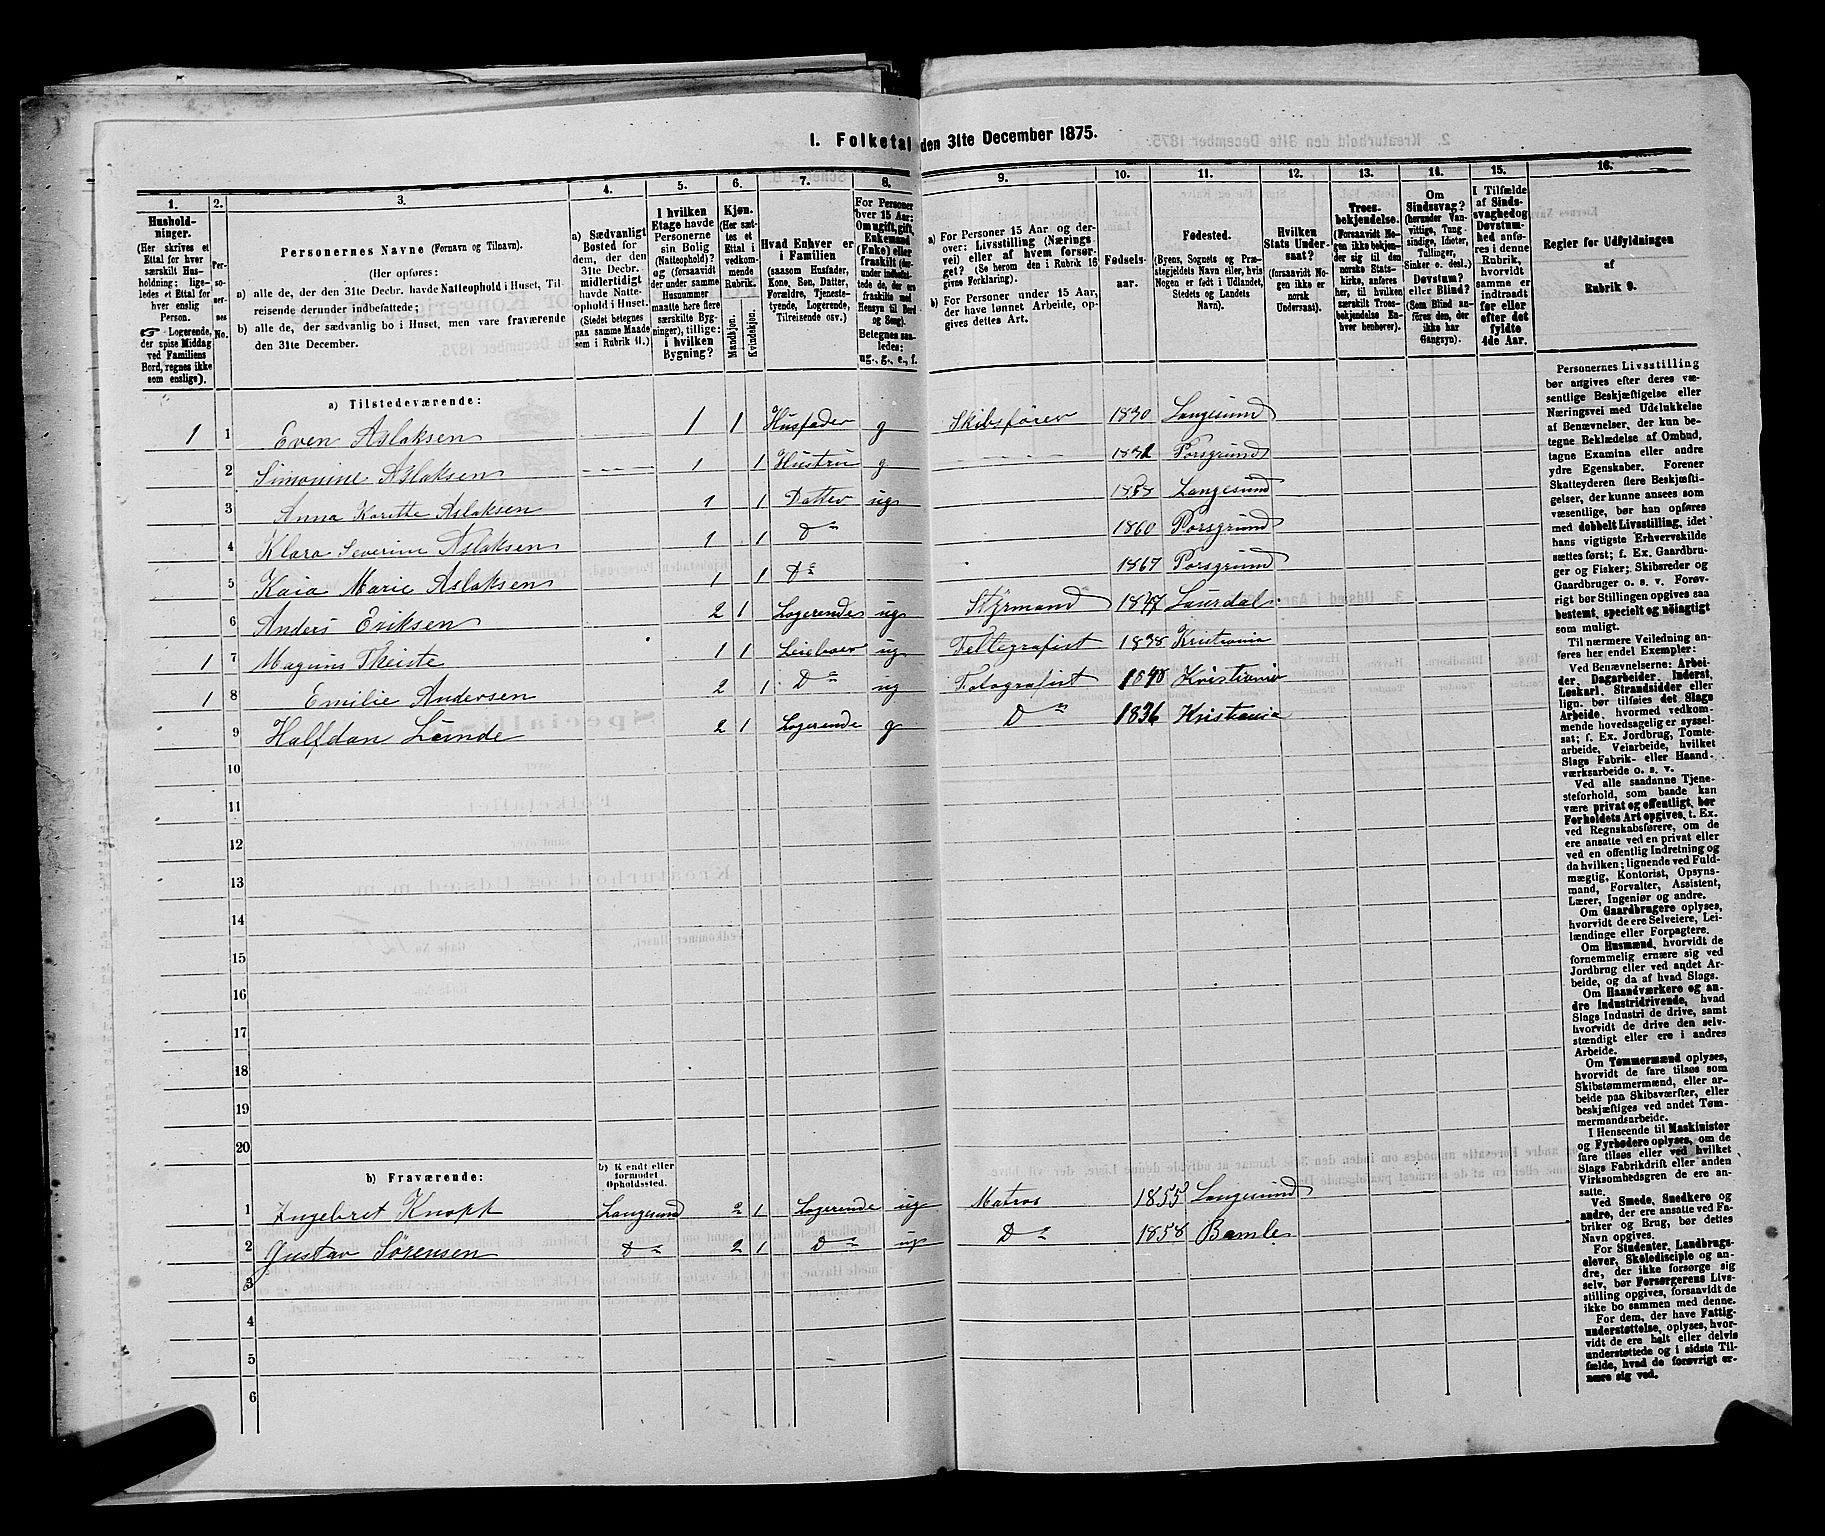 I. Folketal den 31te December 1875.
1. 2. 3. 4. 5. 6. 7. 8. 9. 10. 11. 12. 13. 14. 15. 16.
Husholdninger. (Her skrives et Ettal for hver særskilt Husholdning; ligeledes et Ettal for hver enslig Person. Logerende, der spise Middag ved Familiens Bord, regnes ikke som enslige).
Personernes No.
Personernes Navne (Fornavn og Tilnavn).
(Her opføres:
a) alle de, der den 31te Decbr. havde Natteophold i Huset, Tilreisende derunder indbefattede;
b) alle de, der sædvanlig bo i Huset, men vare fraværende den 31te December.
a) Sædvanligt Bosted for dem, der den 31te Decbr. midlertidigt havde Natteophold i Huset. (Stedet betegnes paa samme Maade som i Rubrik 11.)
I hvilken Etage havde Personerne sin Bolig (Natteophold)? og (forsaavidt der under samme Husnummer maatte høre flere særskilte Bygninger), tillige: i hvilken Bygning?
Kjøn. (Her sættes et Ettal i vedkommende Rubrik. Mandkjøn. Kvindekjøn.
Hvad Enhver er i Familien (saasom Husfader, Kone, Søn, Datter, Forældre, Tjenestetyende, Logerende, Tilreisende osv.)
For Personer over 15 Aar: Om ugift, gift, Enkemand (Enke) eller fraskilt
Betegnes saaledes: ug., g., e., f.
a) For Personer 15 Aar og derover: Livsstilling (Næringsvei) eller af hvem forsørget? (Se herom den i Rubrik 16 givne Forklaring).
b) For Personer under 15 Aar, der have lønnet Arbeide, opgives dettes Art.
Fødselsaar.
Fødested. (Byens, Sognets og Præstegjeldets Navn eller, hvis Nogen er født i Udlandet, Stedets og Landets Navn).
Hvilken Stats Undersaat? (forsaavidt Nogen ikke er norsk Undersaat).
Troesbekjendelse. (Forsaavidt Nogen ikke bekjender sig til den norske Statskirke, anføres her, til hvilken særskilt Troesbekjendelse Enhver henhører).
Om Sindssvag? (herunder Vanvittige, Tungsindige, Idioter, Sinker o. desl.) Døvstum? eller Blind? (Som Blind anføres den, der ikke har Gangsyn).
I Tilfælde af Sindssvaghed og Døvstumhed anføres i denne Rubrik, hvorvidt samme er indtraadt før eller efter det fyldte 4de Aar.
Regler for Udfyldningen af Rubrik 9.
a) Tilstedeværende:
1 1 Even Aslaksen 1 1 Husfader g Skibsfører 1830 Langesund
2 Simonine Aslaksen 1 1 Hustru g Porsgrund
3 Anna Karitte Aslaksen 1 1 Datter ug 1858 Langesund
4 Klara Severine Aslaksen 1 1 Do 1860 Porsgrund
5 Kaia Marie Aslaksen 1 1 Do 1867 Porsgrund
6 Anders Eriksen 2 1 Logerende ug Styrmand 1847 Laurdal
1 7 Magnus Theiste 1 1 Leieboer ug Tellegrafist 1838 Kristiania
1 8 Emilie Andersen 2 1 Do ug Fotografist Kristiania
9 Halfdan Lunde 2 1 Logerende g Do 1836 Kristiania
10
11
12
13
14
15
16
17
18
19
20
b) Fraværende: b) Kendt eller formodet Opholdssted.
1 Ingebret Knapp Langesund 2 1 Logerende ug Matros 1855 Langesund
2 Gustav Sørensen Do 2 1 Do ug Do 1858 Bamle
3
4
5
6
Personernes Livsstilling
bør angives efter deres væ-
sentlige Beskjæftigelse eller
Næringsvei med Udelukkelse
af Benævnelser, der kun be-
tegne Beklædelse af Ombud,
tagne Examina eller andre
ydre Egenskaber. Forener
Skatteyderen flere Beskjæfti-
gelser, der kunne ansees som
væsentlige, bør han opføres
med dobbelt Livsstilling, idet
hans vigtigste Erhvervskilde
sættes først; f. Ex. Gaardbru-
ger og Fisker; Skibsreder og
Gaardbruger o. s. v. Forøv-
rigt bør Stillingen opgives saa
bestemt, specielt og nøiagtigt
som muligt.
Til nærmere Veiledning an-
føres her endel Exempler:
Ved Benævnelserne: Arbei-
der, Dagarbeider, Inderst,
Løskarl, Strandsidder eller
lign. bør tilføies det Slags
Arbeide, hvormed vedkom-
mende hovedsagelig er syssel-
sat; f. Ex. Jordbrug, Tomte-
arbeide, Veiarbeide, hvilket
Slags Fabrik- eller Haand-
værksarbeide o. s. v.
Ved alle saadanne Tjene-
steforhold, som baade kan
være privat og offentligt, bør
Forholdets Art opgives, t. Ex.
ved Regnskabsførere, om de
ere ansatte ved en privat eller
ved en offentlig Indretning og
da hvilken; lignende ved Fuld-
mægtig, Kontorist, Opsyns-
mand, Forvalter, Assistent,
Lærer, Ingeniør og andre.
Om Gaardbrugere oplyses,
hvorvidt de ere Selveiere, Lei-
lændinge eller Forpagtere.
Om Husmænd, hvorvidt de
fornemmelig ernære sig ved
Jordbrug eller ved andet Ar-
beide, og da af hvad Slags.
Om Haandværkere og an-
dre Industridrivende, hvad
Slags Industri de drive, samt
hvorvidt de drive den selv-
stændigt eller ere i andres
Arbeide.
Om Tømmermænd oplyses,
hvorvidt de fare tilsøs som
Skibstømmermænd, eller ar-
beide paa Skibsværfter, eller
beskjæftiges ved andet Tøm-
mermandsarbeide.
I Henseende til Maskinister
og Fyrbødere oplyses, om de
fare tilsøs eller ved hvilket
Slags Fabrikdrift eller anden
Virksomhedsgren de ere an-
satte.
Ved Smede, Snedkere og
andre, der ere ansatte ved Fa-
briker og Brug, bør dettes
Navn opgives.
For Studenter, Landbrugs-
elever, Skoledisciple og an-
dre, der ikke forsørge sig
selv, bør Forsørgerens Livs-
stilling opgives, forsaavidt de
ikke bo sammen med denne.
For dem, der have Fattig-
understøttelse, oplyses, hvor-
vidt de ere helt eller delvis
understøttede og i sidste Til-
fælde, hvad de forøvrigt er-
nære sig ved.